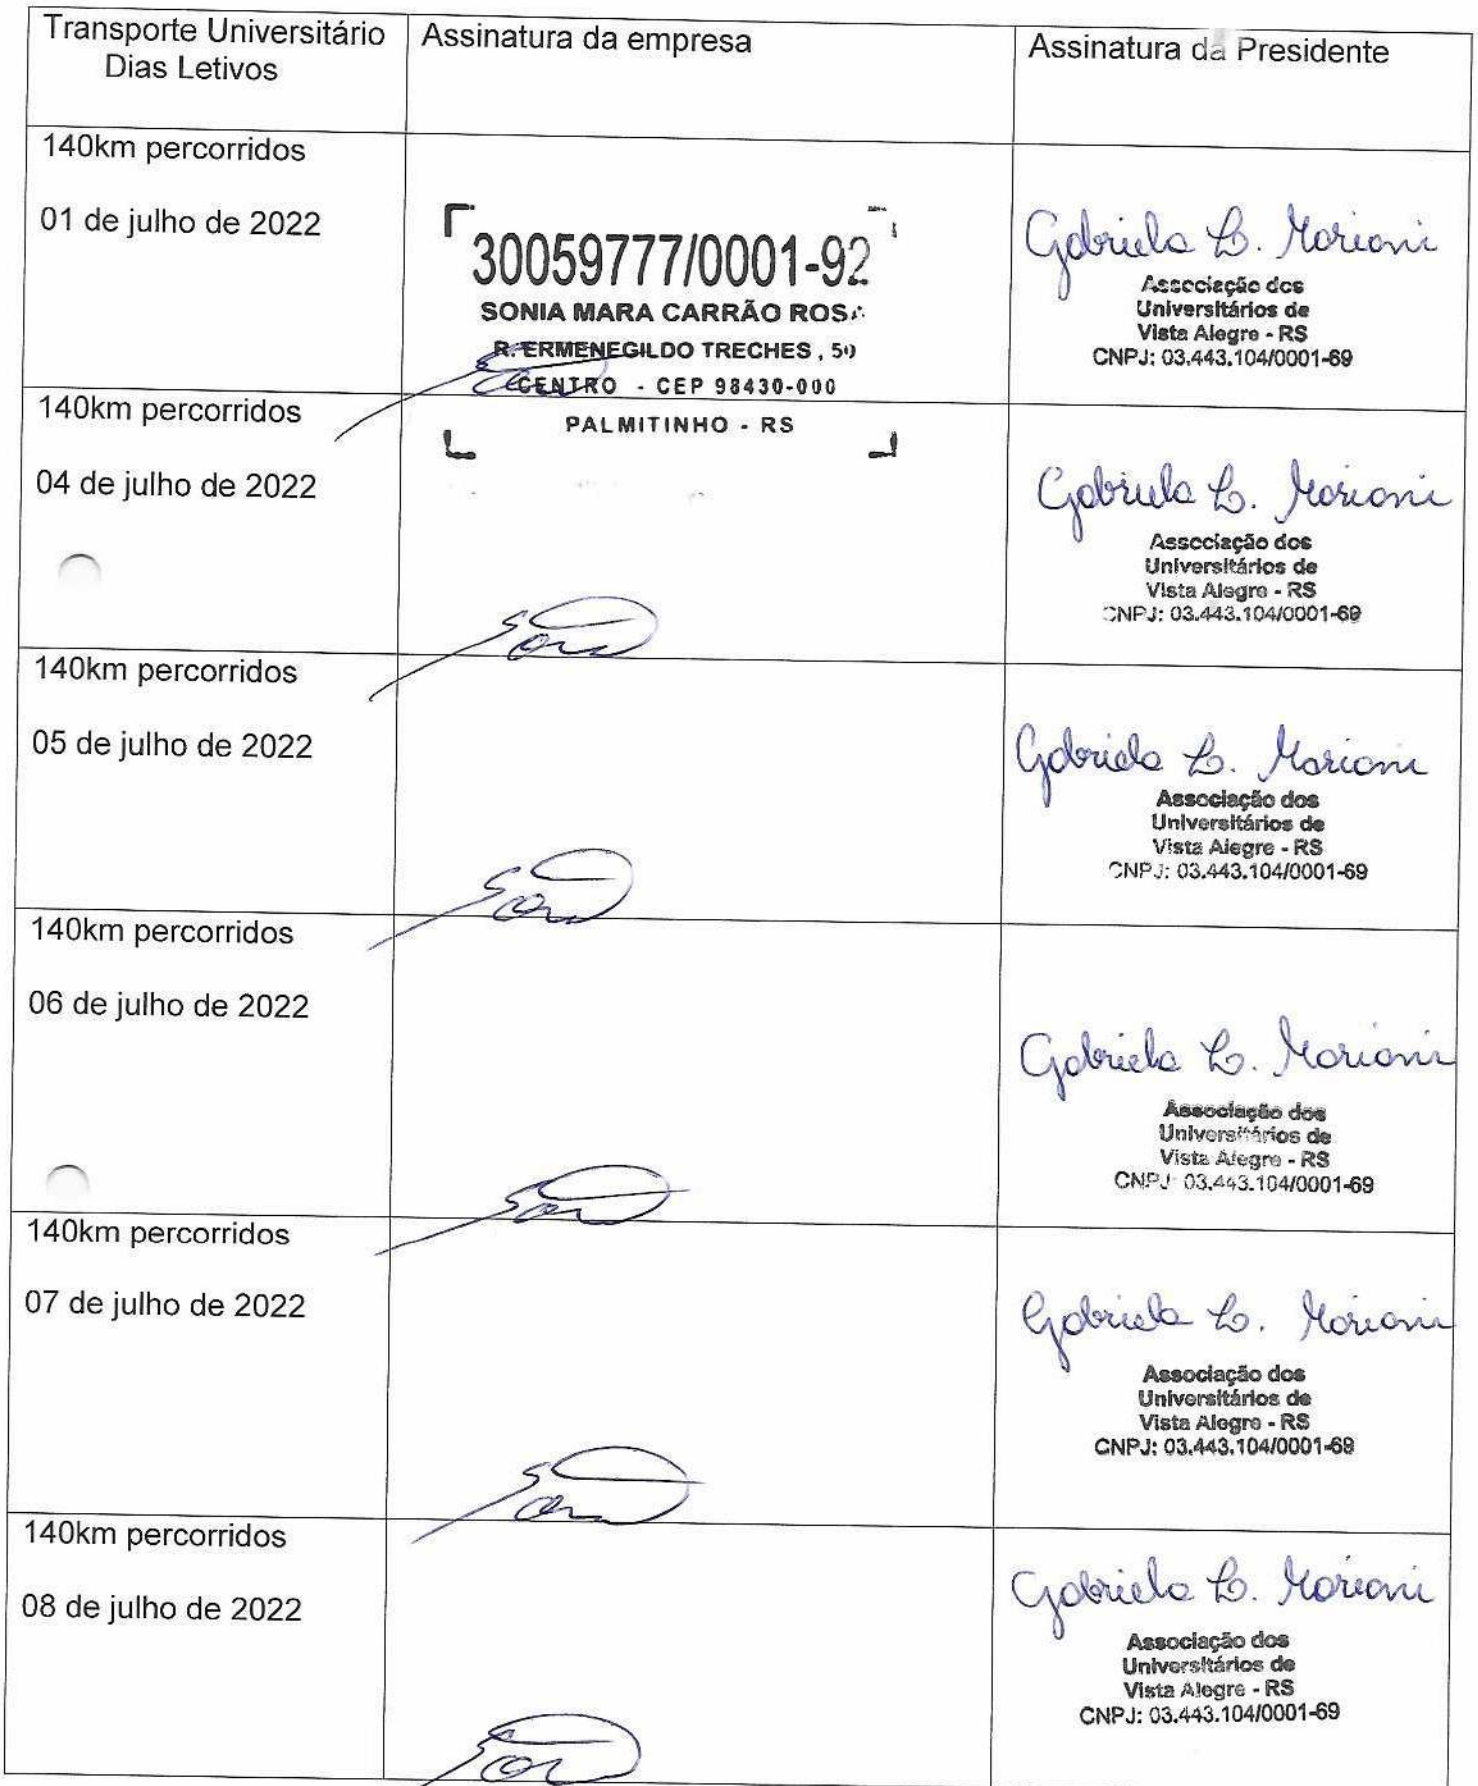 Transporte Universitário
Dias Letivos
Assinatura da empresa
Assinatura da Presidente
140km percorridos
01 de julho de 2022
30059777/0001-92
SONIA MARA CARRÃO ROSA
R. ERMENEGILDO TRECHES, 50
CENTRO - CEP 98430-000
PALMITINHO - RS
Gabriela L. Marioni
Associação dos
Universitários de
Vista Alegre - RS
CNPJ: 03.443.104/0001-69
140km percorridos
04 de julho de 2022
Gabriela L. Marioni
Associação dos
Universitários de
Vista Alegre - RS
CNPJ: 03.443.104/0001-69
140km percorridos
05 de julho de 2022
Gabriela L. Marioni
Associação dos
Universitários de
Vista Alegre - RS
CNPJ: 03.443.104/0001-69
140km percorridos
06 de julho de 2022
Gabriela L. Marioni
Associação dos
Universitários de
Vista Alegre - RS
CNPJ: 03.443.104/0001-69
140km percorridos
07 de julho de 2022
Gabriela L. Marioni
Associação dos
Universitários de
Vista Alegre - RS
CNPJ: 03.443.104/0001-69
140km percorridos
08 de julho de 2022
Gabriela L. Marioni
Associação dos
Universitários de
Vista Alegre - RS
CNPJ: 03.443.104/0001-69